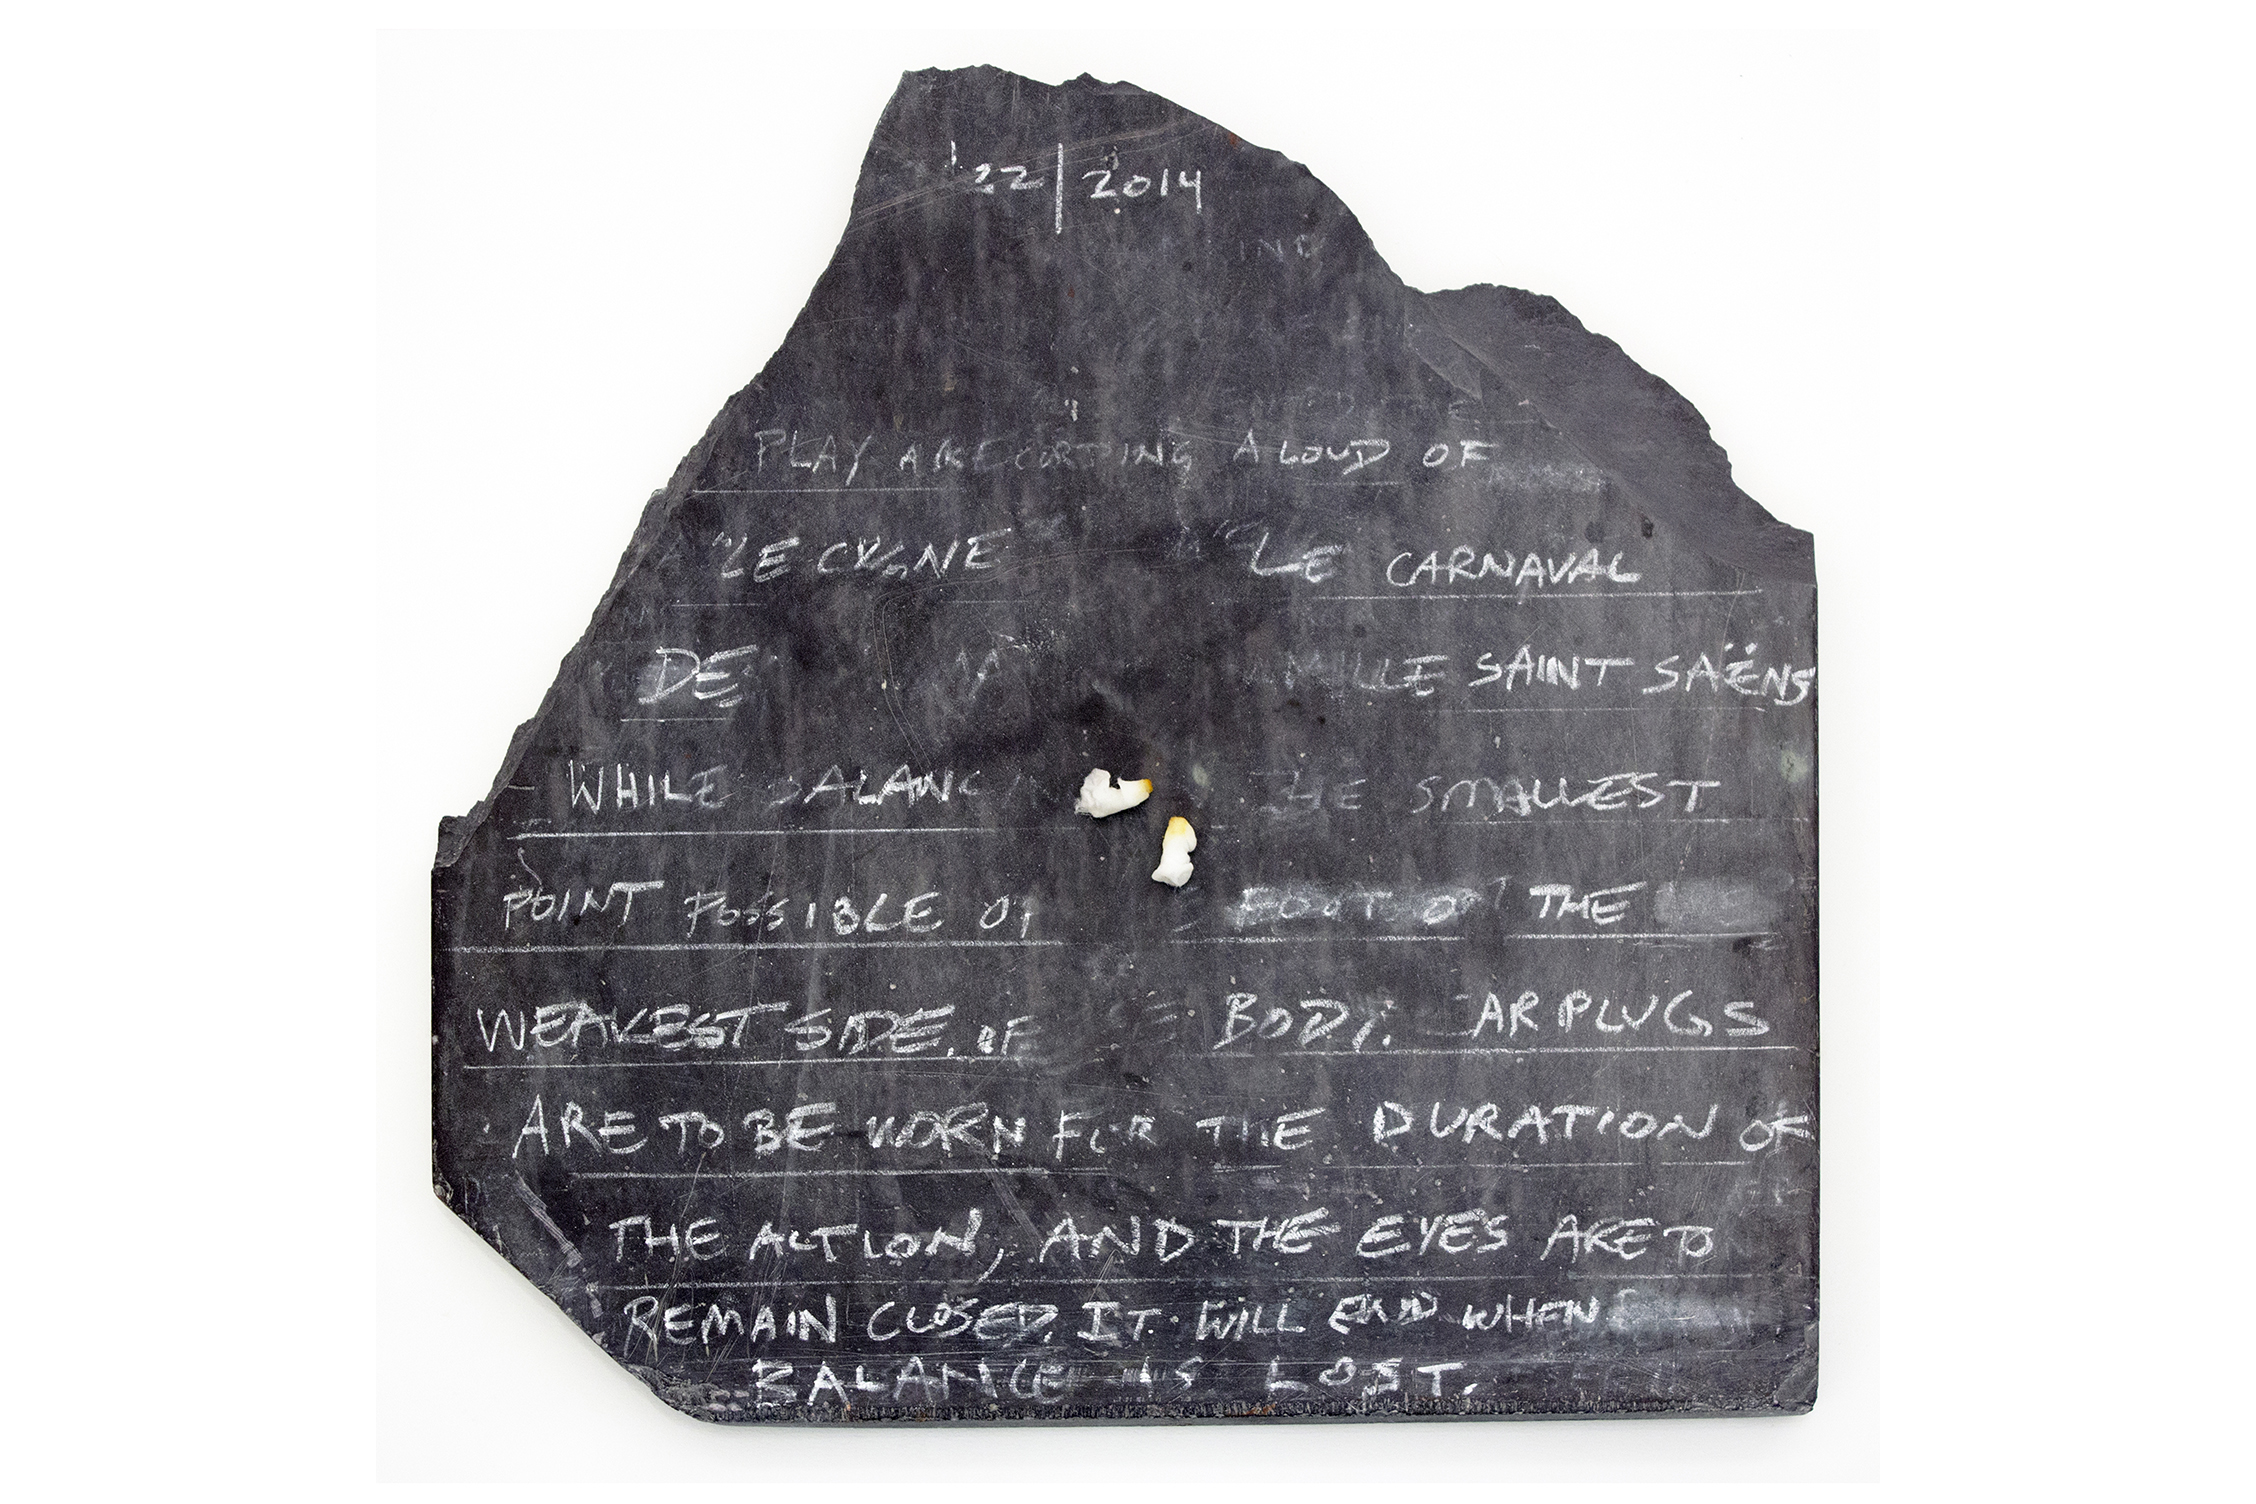 '22 | 2014
PLAY A RECORDING ALOUD OF
"LE CYGNE "LE CARNAVAL
DES SAINT SAËNS
WHILE THE SMALLEST
POINT POSSIBLE FOOT OF THE
WEAKEST SIDE OF BODY. EARPLUGS
ARE TO BE WORN FOR THE DURATION OF
THE ACTION, AND THE EYES ARE TO
REMAIN CLOSED. IT WILL END WHEN
BALANCE IS LOST.